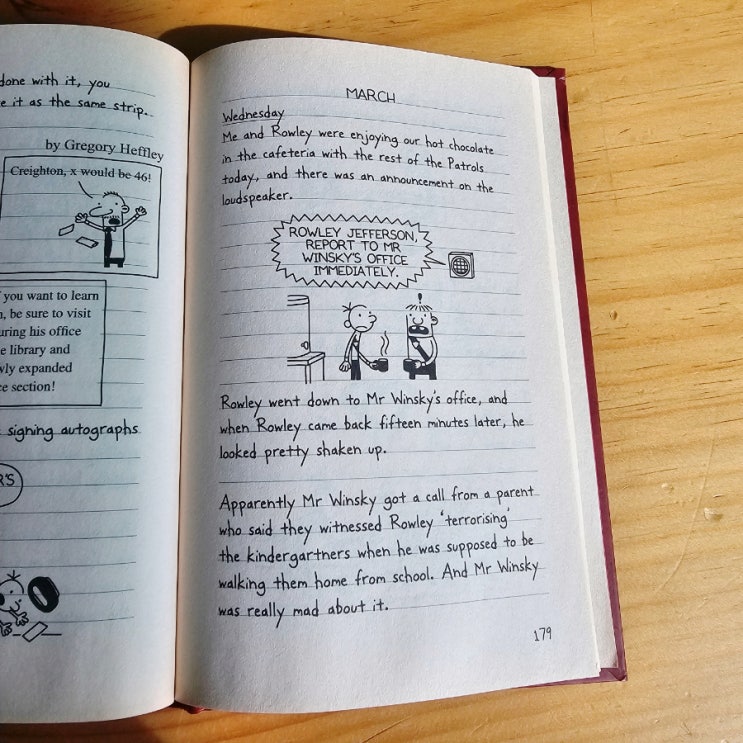 done with it, you
e it as the same strip.
by Gregory Heffley
Creighton, x would be 46!
you want to learn
, be sure to visit
uring his office
e library and
wly expanded
e section!
signing autographs
R'S
MARCH
Wednesday
Me and Rowley were enjoying our hot chocolate
in the cafeteria with the rest of the Patrols
today, and there was an announcement on the
loudspeaker.
ROWLEY JEFFERSON,
REPORT TO MR
WINSKY'S OFFICE
IMMEDIATELY.
Rowley went down to Mr Winsky's office, and
when Rowley came back fifteen minutes later, he
looked pretty shaken up.
Apparently Mr Winsky got a call from a parent
who said they witnessed Rowley 'terrorising'
the kindergartners when he was supposed to be
walking them home from school. And Mr Winsky
was really mad about it.
179